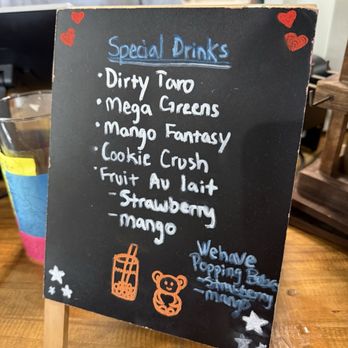 Special Drinks
• Dirty Taro
• Mega Greens
• Mango Fantasy
• Cookie Crush
• Fruit Au lait
- Strawberry
- mango
We have
Popping Boba
- Strawberry
- mango